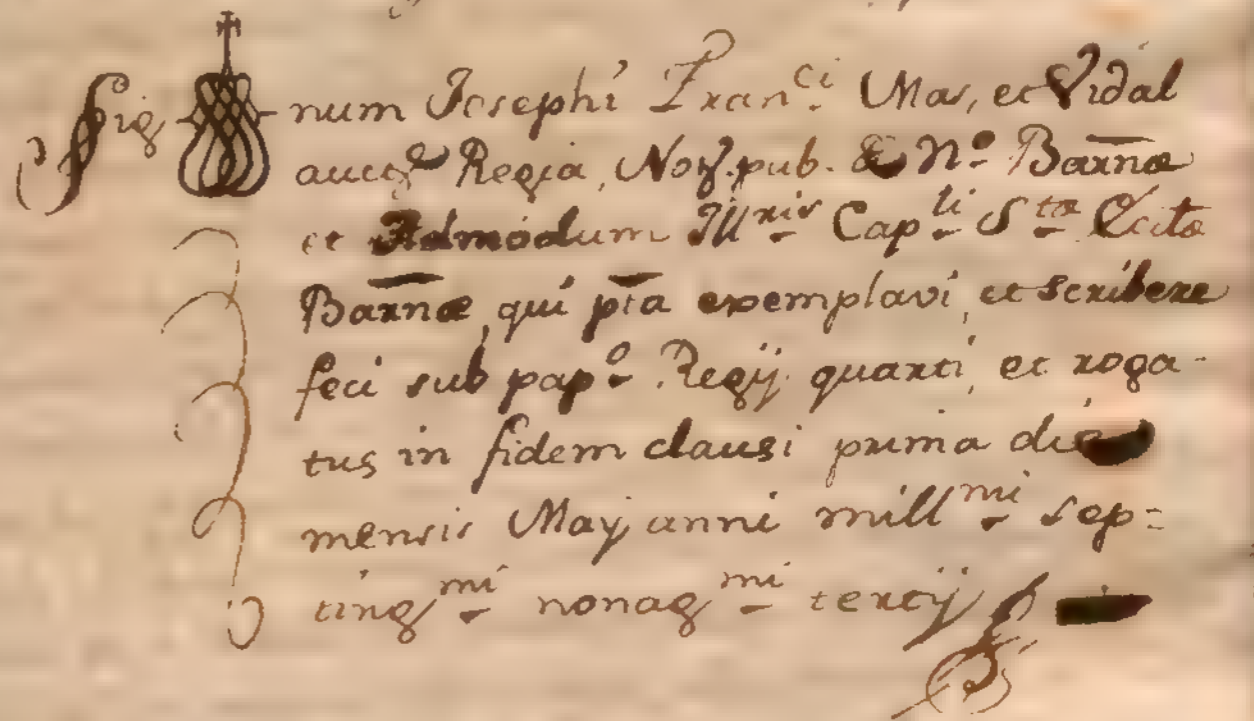 Sig num Josephi Franci Mas, et Vidal
auctte Regia, Not. pub. & No Barnæ
et Admodum Illris Capli Stæ Ecctæ
Barnæ, qui pta exemplavi, et scribere
feci sub papo Regij quarti, et roga-
tus in fidem clausi prima die
mensis Maÿ anni millmi sep=
tingmi nonagmi tertij